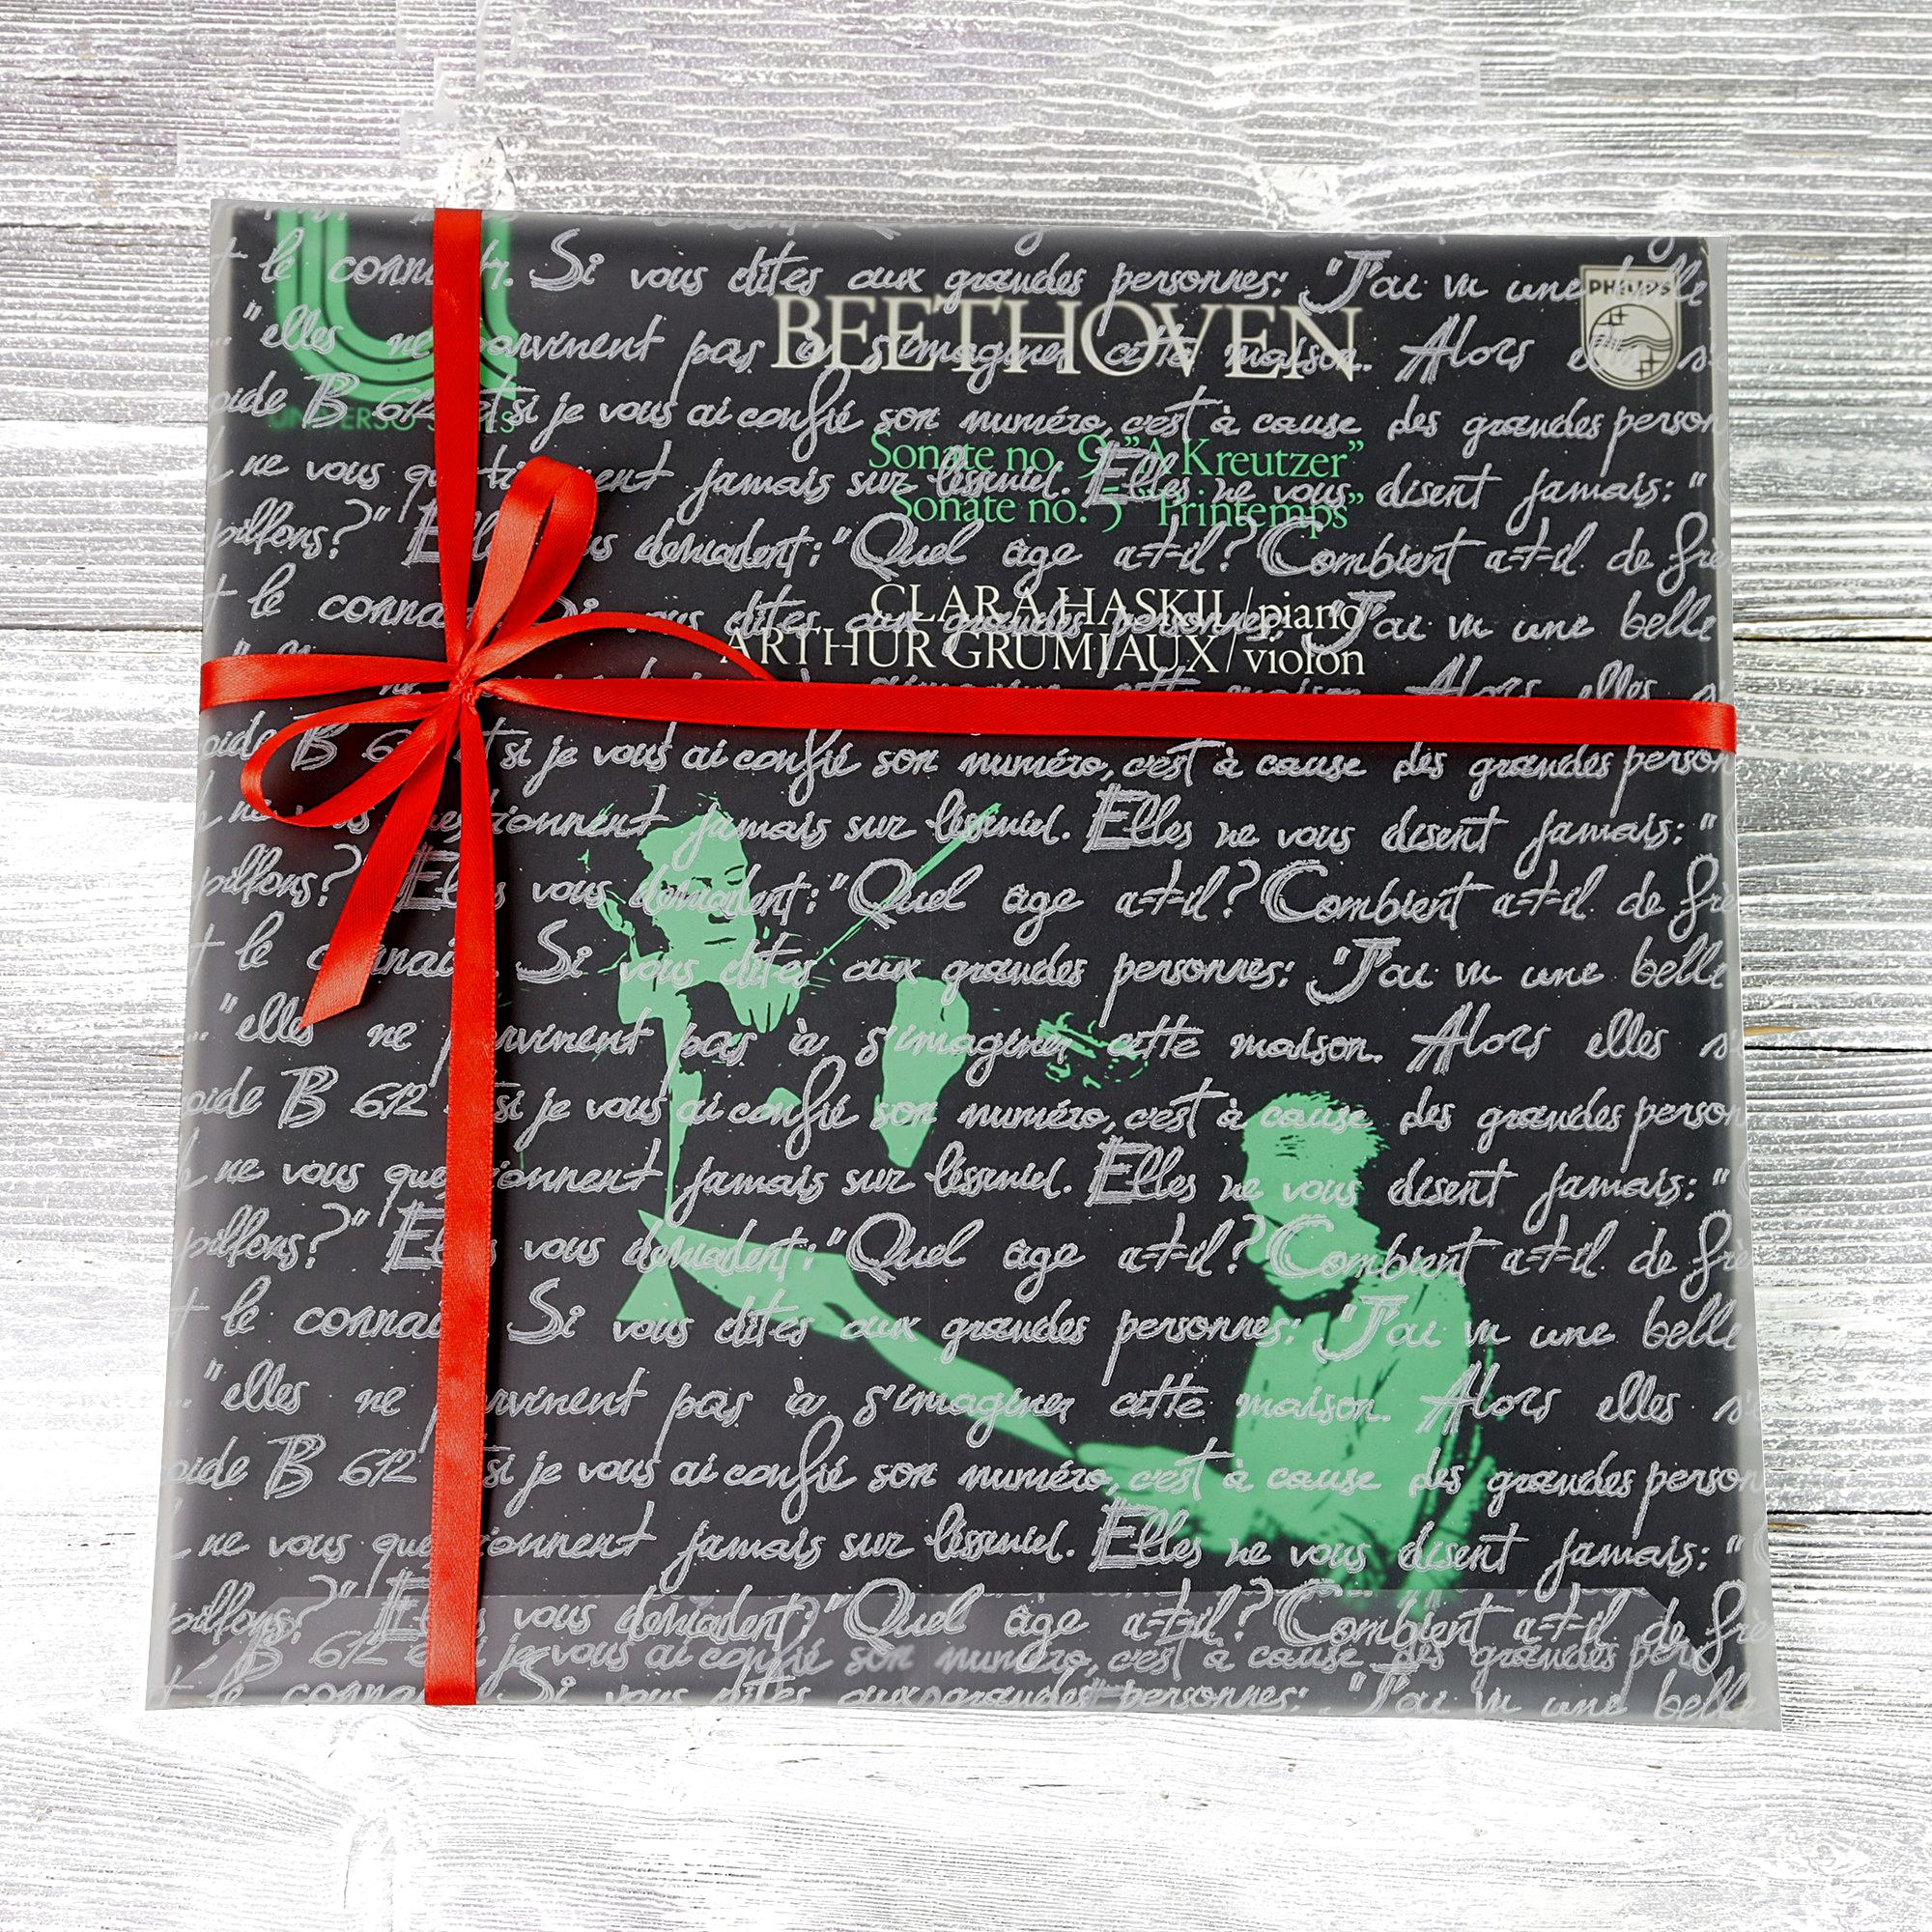 t le connaître. Si vous dites aux grandes personnes: "J'ai vu une belle
PHILIPS
BEETHOVEN
..."elles ne parvinent pas à s'imaginer cette maison. Alors elles s'
B 612 et si je vous ai confié son numéro, c'est à cause des grandes person
UNIVERSO SERIES
Sonate no. 9 "A Kreutzer"
ne vous questionnent jamais sur l'éssentiel. Elles ne vous disent jamais: "
Sonate no. 5 "Printemps"
Elles vous demandent: "Quel âge a-t-il? Combient a-t-il de frè
CLARA HASKIL / piano
t le connaît. Si vous dites aux grandes personnes: "J'ai vu une belle
ARTHUR GRUMIAUX / violon
ne s'imaginer cette maison. Alors elles s'
oide B 612 et si je vous ai confié son numéro, c'est à cause des grandes person
ne vous questionnent jamais sur l'éssentiel. Elles ne vous disent jamais: "
Elles vous demandent: "Quel âge a-t-il? Combient a-t-il de frè
t le connaît. Si vous dites aux grandes personnes: "J'ai vu une belle
..."elles ne parvinent pas à s'imaginer cette maison. Alors elles s'
oide B 612 et si je vous ai confié son numéro, c'est à cause des grandes person
ne vous questionnent jamais sur l'éssentiel. Elles ne vous disent jamais: "
Elles vous demandent: "Quel âge a-t-il? Combient a-t-il de frè
t le connaît. Si vous dites aux grandes personnes: "J'ai vu une belle
..."elles ne parvinent pas à s'imaginer cette maison. Alors elles s'
oide B 612 et si je vous ai confié son numéro, c'est à cause des grandes person
ne vous questionnent jamais sur l'éssentiel. Elles ne vous disent jamais: "
Elles vous demandent: "Quel âge a-t-il? Combient a-t-il de frè
B 612 et si je vous ai confié son numéro, c'est à cause des grandes perso
t le connaît. Si vous dites aux grandes personnes: "J'ai vu une belle